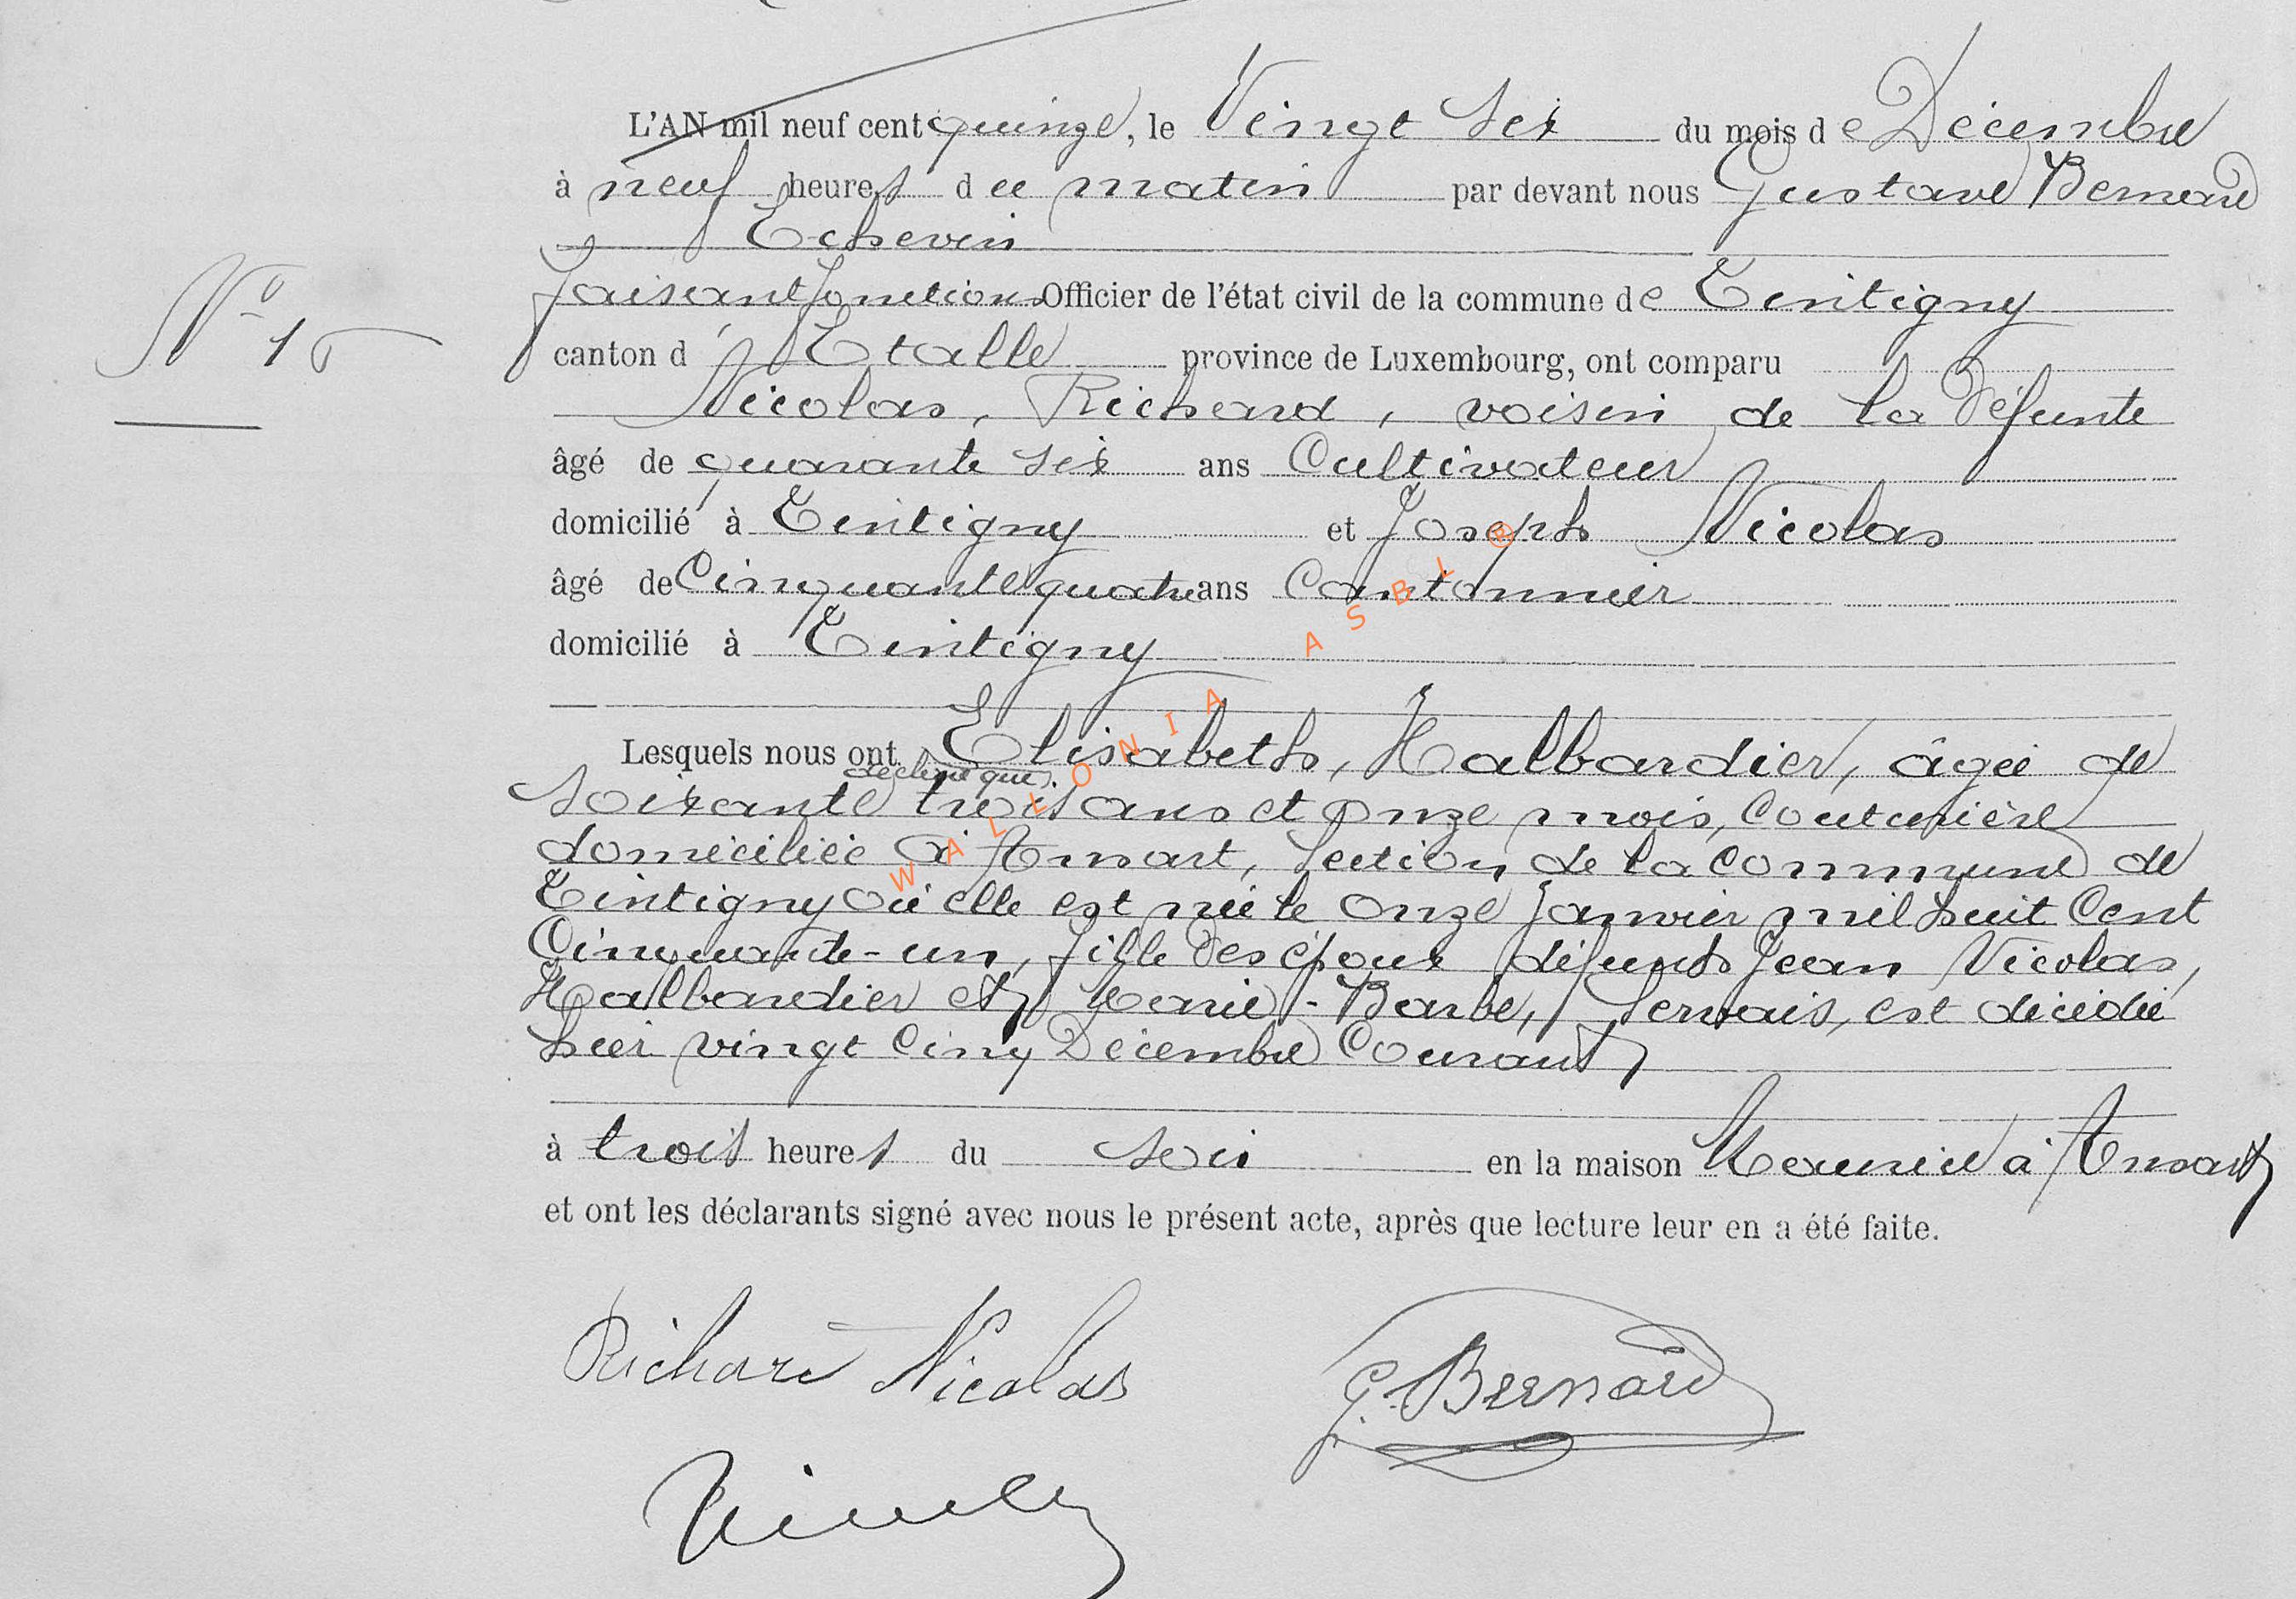 L'AN mil neuf cent quinze, le Vingt Six du mois de Décembre
à neuf heures du matin par devant nous Gustave Bernard
Echevin
faisant fonctions Officier de l'état civil de la commune de Tintigny
N° 15
canton d'Etalle province de Luxembourg, ont comparu
Nicolas, Richard, voisin de la défunte
âgé de quarante six ans Cultivateur
domicilié à Tintigny et Joseph Nicolas
âgé de Cinquante quatre ans Cantonnier
domicilié à Tintigny
Lesquels nous ont Elisabeth, Halbardier, âgée de
déclaré que
soixante trois ans et onze mois, Couturière
domiciliée à Ansart, Section de la Commune de
Tintigny où elle est née le onze Janvier mil huit Cent
Cinquante-un, fille des époux défunts Jean Nicolas,
Halbardier et Marie-Barbe, Servais, est décédée
hier vingt Cinq Décembre Courant
à trois heures du soir en la maison à Ansart
et ont les déclarants signé avec nous le présent acte, après que lecture leur en a été faite.
Richard Nicolas
G. Bernard
WALLONIA ASBL ®